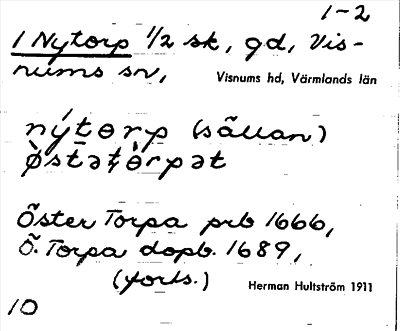 1-2
1 Nytorp 1/2 sk, gd, Vis-
nums sn,
Visnums hd, Värmlands län
nýtɵrp (sällan)
Öster Torpa prb 1666,
Ö. Torpa dopb. 1689,
(forts.)
Herman Hultström 1911
10